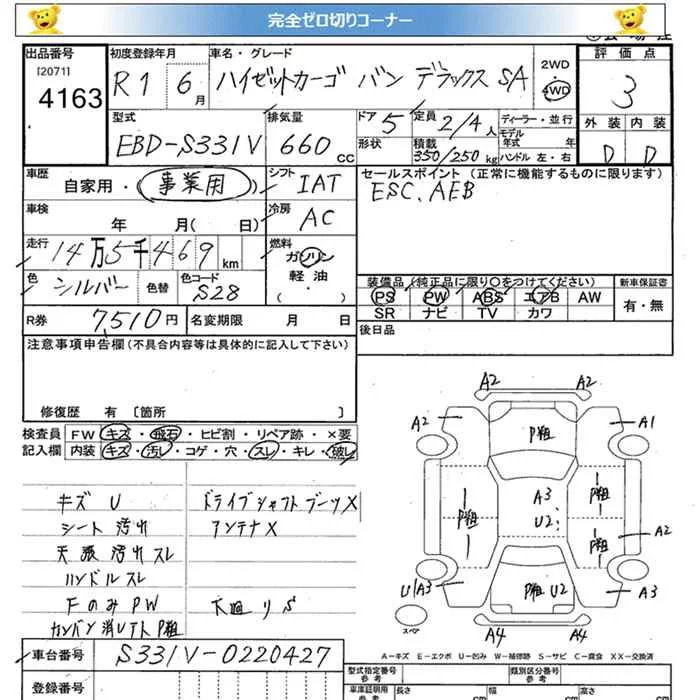 完全ゼロ切りコーナー
出品番号
[2071]
4163
初度登録年月
R1 6月
車名・グレード
ハイゼットカーゴ バン デラックス SA
2WD
4WD
評価点
3
外装 内装
D D
型式
EBD-S331V
排気量
660 CC
ドア
5
形状
定員
2/4人
積載
350/250kg
ディーラー・並行
モデル
年式 年
ハンドル 左・右
車歴
自家用・事業用
シフト
IAT
セールスポイント (正常に機能するものに限ります)
ESC、AEB
車検
年 月( 日)
冷房
AC
走行
14万5千469km
燃料
ガソリン
軽油
( )
色
シルバー
色替
色コード
S28
装備品 (純正品に限り○をつけてください)
新車保証書
PS PW ABS エアB AW
SR ナビ TV カワ
有・無
R券
7,510円
名変期限 月 日
後日品
注意事項申告欄(不具合内容等は具体的に記入して下さい)
修復歴 有 〔箇所 〕
検査員 FW キズ・飛石・ヒビ割・リペア跡・×要
記入欄 内装 キズ・汚レ・コゲ・穴・スレ・キレ・破レ
キズ U
シート 汚れ
天張 汚れ スレ
ハンドル スレ
Fのみ PW
カンバン消し下ト P粗
ドライブシャフトブーツX
アンテナX
下廻りS
A2 A2
A2 P粗 A1
A3
P粗 U2 P粗
P粗 A2
U/A3 P粗 U2 A3
スペア
A4 A4
A-キズ E-エクボ U-凹み W-補修跡 S-サビ C-腐食 XX-交換済
車台番号
S331V-0220427
登録番号
型式指定番号
参考
類別区分番号
参考
車庫証明用
参考
長さ cm
幅 cm
高さ cm